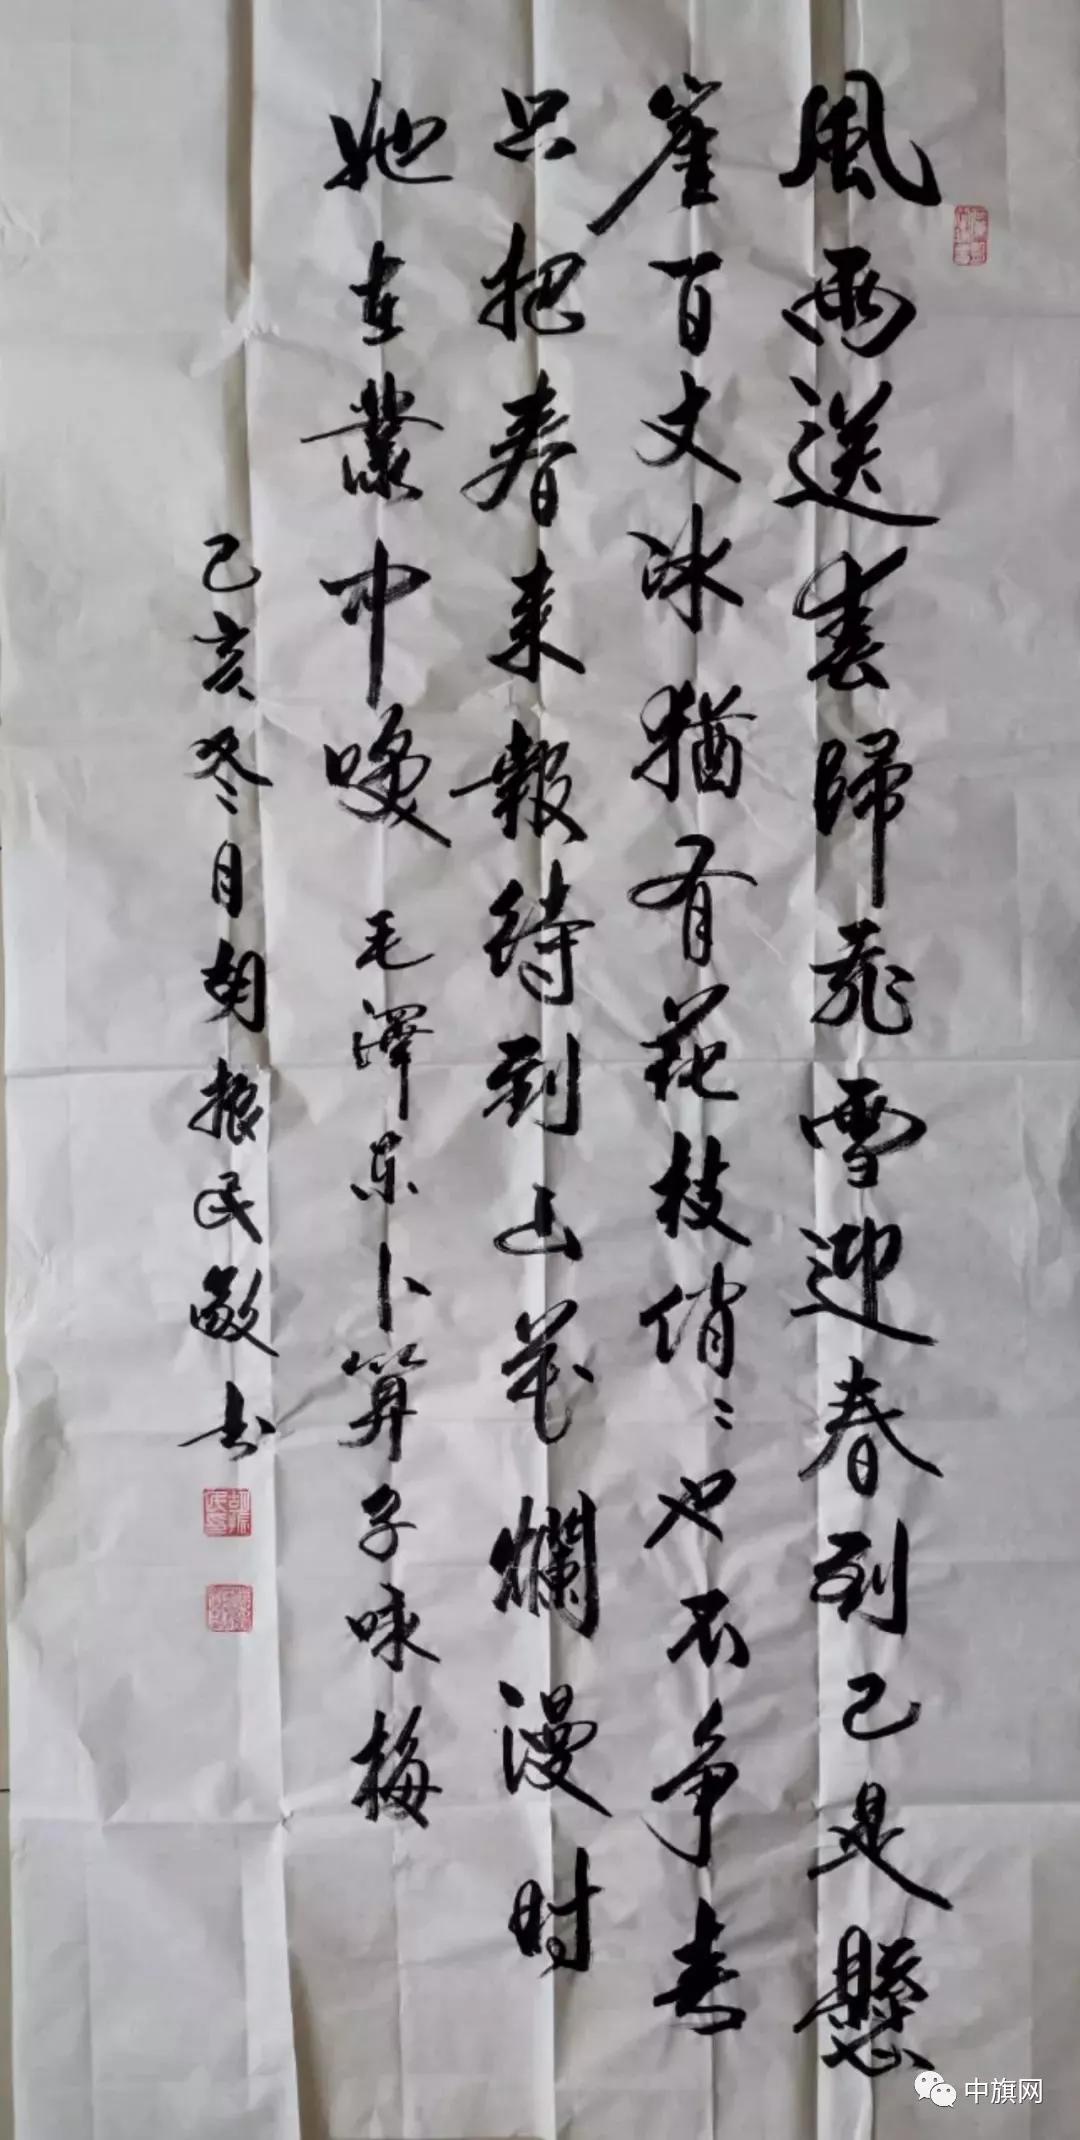 風雨送春歸飛雪迎春到已是懸
崖百丈冰猶有花枝俏〻也不争春
只把春来報待到山花爛漫时
她在叢中咲 毛澤东卜算子咏梅
己亥冬月胡振民敬书
中旗网